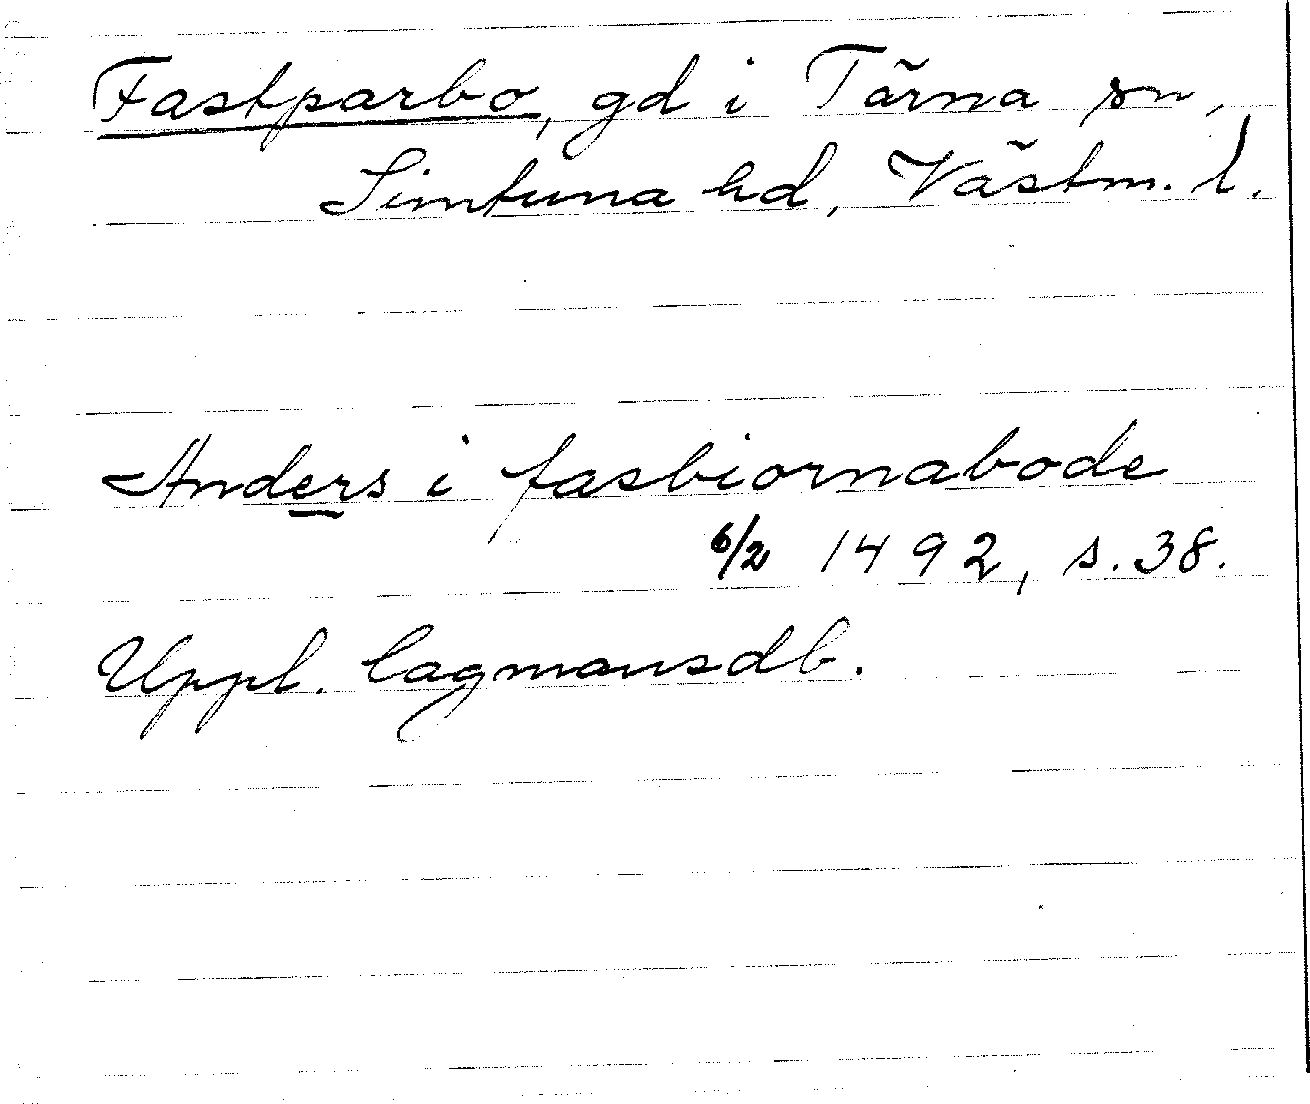 Fastparbo, gd i Tärna sn,
Simtuna hd, Västm. l.
Anders i fasbiornabode
6/2 1492, s. 38.
Uppl. lagmansdb.